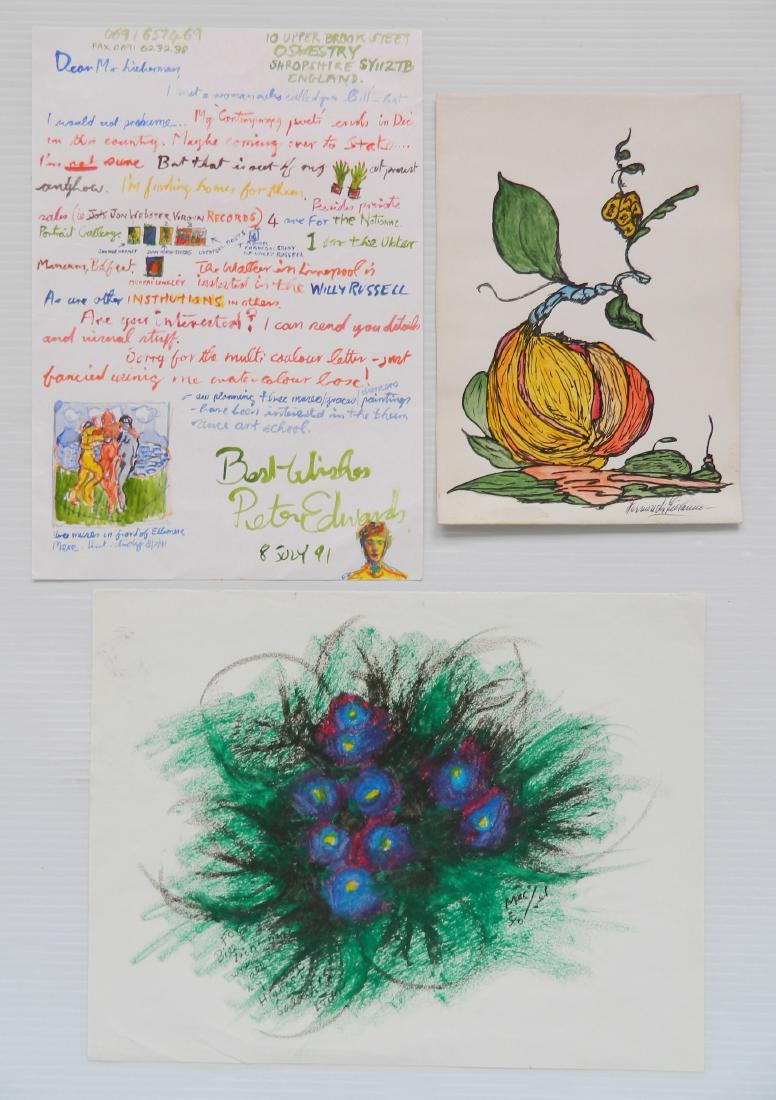 0691 657469
FAX 0691 623238
10 UPPER BROOK STEET
OSWESTRY
SHROPSHIRE SY112TB
ENGLAND.
Dear Mr Lieberman,
I met a woman who called you Bill - but
I would not presume.... My Contemporary poets ends in Dec
in this country. Maybe coming over to States....
I'm not sure But that is out of my at present
anyhow. I'm finding homes for them.
Besides private
sales (ie JON WEBSTER VIRGIN RECORDS) 4 are For the National
Portrait Gallery.
1 for the Ulster
OF WILLY RUSSELL
Museum, Belfast. The Walker in Liverpool is
interested in the WILLY RUSSELL
As are other INSTITUTIONS in others.
Are you interested? I can send you details
and visual stuff.
Sorry for the multi coulour letter - just
fancied using me water colour box!
- am planning three muses/graces/ paintings
- have been interested in the theme
since art school.
Best Wishes
Peter Edwards
8 JULY 91
three muses in front of Ellesmere
Mere
For